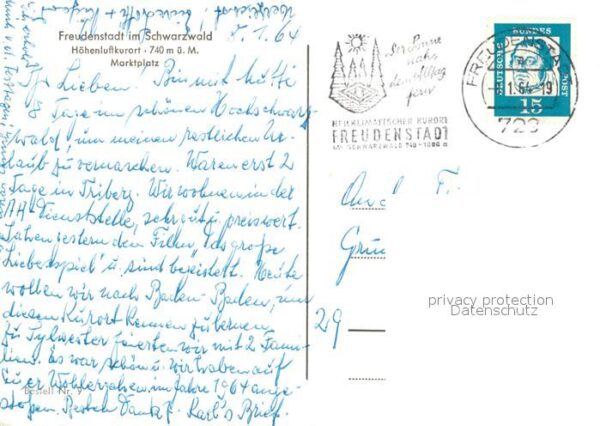 5.1.64
Freudenstadt im Schwarzwald
Höhenluftkurort · 740 m ü. M.
Marktplatz
Ihr Lieben! Bin mit Mutti
8 Tage im schönen Hochschwarz-
wald, um meinen restlichen Ur-
laub zu vermarschen. Waren erst 2
Tage in Triberg. Wir wohnen in der
Dienststelle, sehr gut u. preiswert.
Sahen gestern den Film „das große
Liebesspiel" u. sind begeistert. Heute
wollen wir nach Baden-Baden, um
diesen Kurort kennen zu lernen.
Zu Sylvester feierten wir mit 2 Fami-
lien. Es war schön u. wir haben auf
Euer Wohlergehen im Jahre 1964 ange-
stoßen. Besten Dank f. Karl's Brief.
Bestell Nr. 9
Der Sonne
nahe
dem Alltag
fern
HEILKLIMATISCHER KURORT
FREUDENSTADT
IM SCHWARZWALD 740-1000 m
FREUDENSTA
1.64-19
723
DEUTSCHE BUNDESPOST
15
F.
Grün
29
privacy protection
Datenschutz